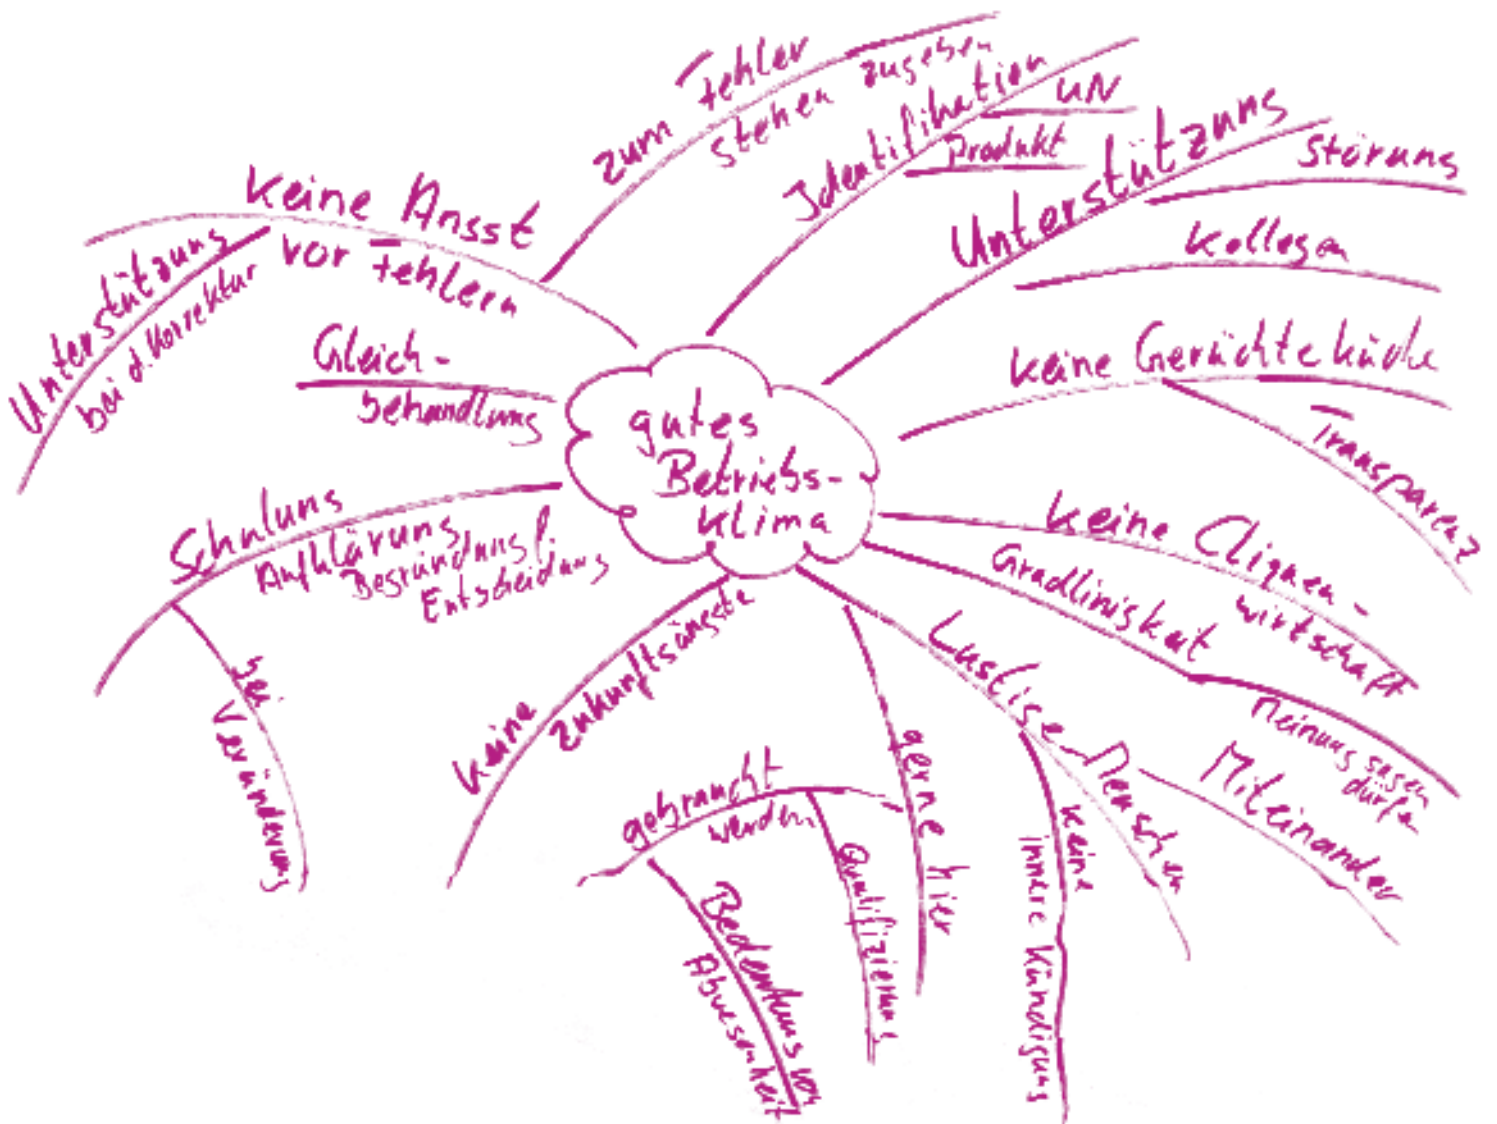 gutes
Betriebs-
klima
keine Angst
vor Fehlern
Unterstützung
bei d. Korrektur
zum Fehler
stehen zugeben
Identifikation
UN
Produkt
Unterstützung
Störung
Kollegen
keine Gerüchteküche
Transparenz
keine Cliquen-
wirtschaft
Gradlinigkeit
Meinung sagen
dürfen
Lustige Menschen
Miteinander
keine
innere Kündigung
gerne hier
gebraucht
werden
Qualifizierung
Bedeutung von
Abwesenheit
keine
Zukunftsängste
Schulung
Aufklärung
Begründung f.
Entscheidung
bei
Veränderung
Gleich-
behandlung